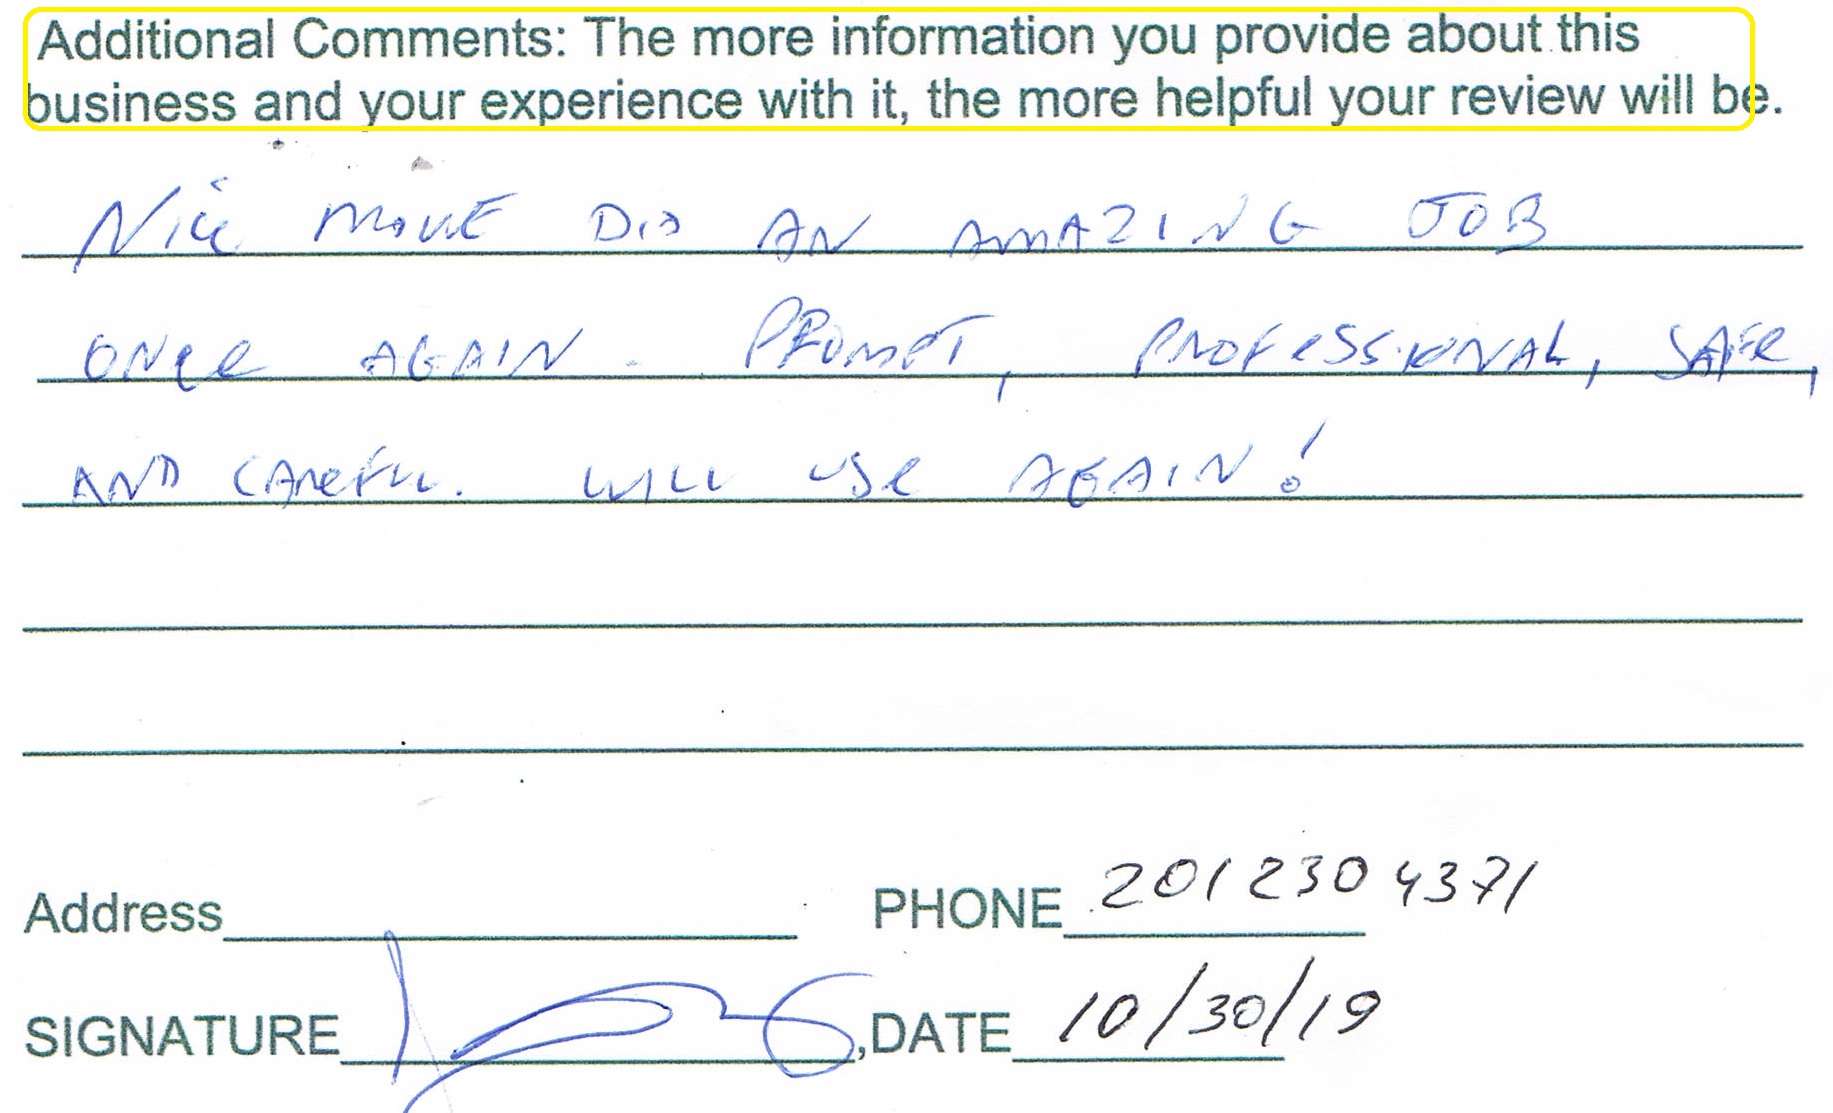 Additional Comments: The more information you provide about this
business and your experience with it, the more helpful your review will be.
Nice MOVE DID AN AMAZING JOB
ONCe AGAIN. PROMPT, PROFeSSIONAL, SAFe,
AND CAReFUL. WILL USe AGAIN!
Address PHONE 201 230 4371
SIGNATURE , DATE 10/30/19